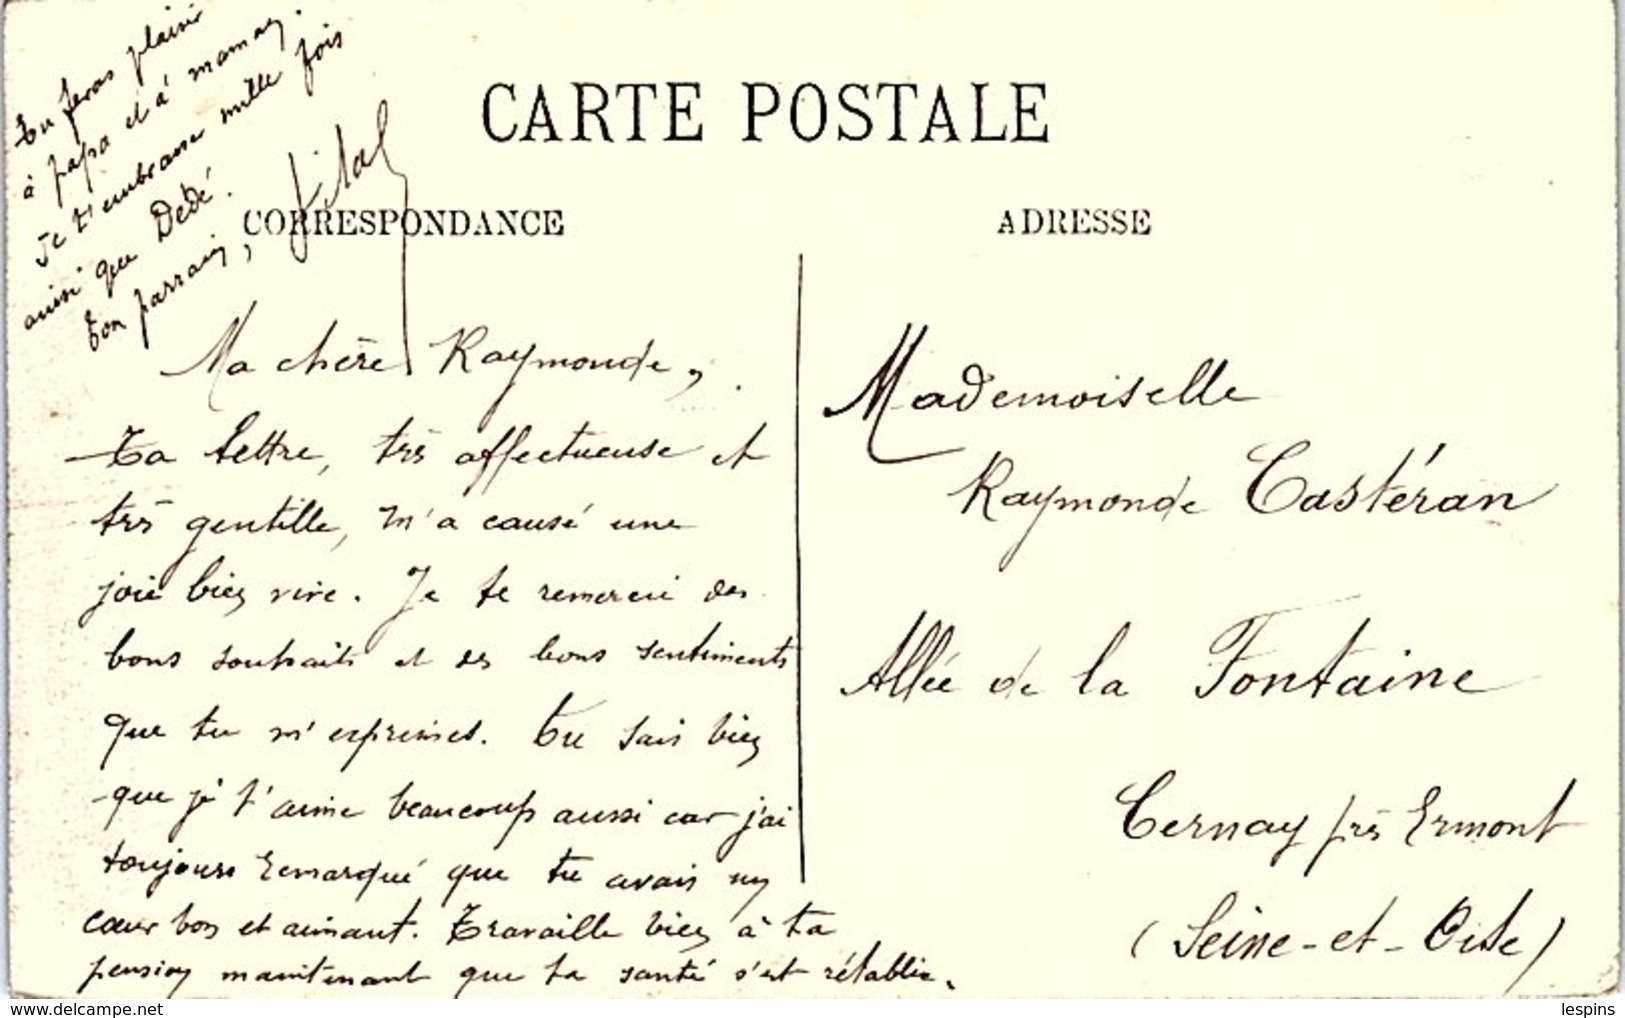 CARTE POSTALE
CORRESPONDANCE
ADRESSE
Ma chère Raymonde,
Ta lettre, très affectueuse et
très gentille, m'a causé une
joie bien vive. Je te remercie des
bons souhaits et des bons sentiments
que tu m'exprimes. Tu sais bien
que je t'aime beaucoup aussi car j'ai
toujours remarqué que tu avais un
cœur bon et aimant. Travaille bien à ta
pension maintenant que ta santé s'est rétablie.
Tu feras plaisir
à papa et à maman.
Je t'embrasse mille fois
ainsi que Dédé.
Ton parrain,
Vital
Mademoiselle
Raymonde Castéran
Allée de la Fontaine
Cernay près Ermont
(Seine-et-Oise)
lespins
delcampe.net